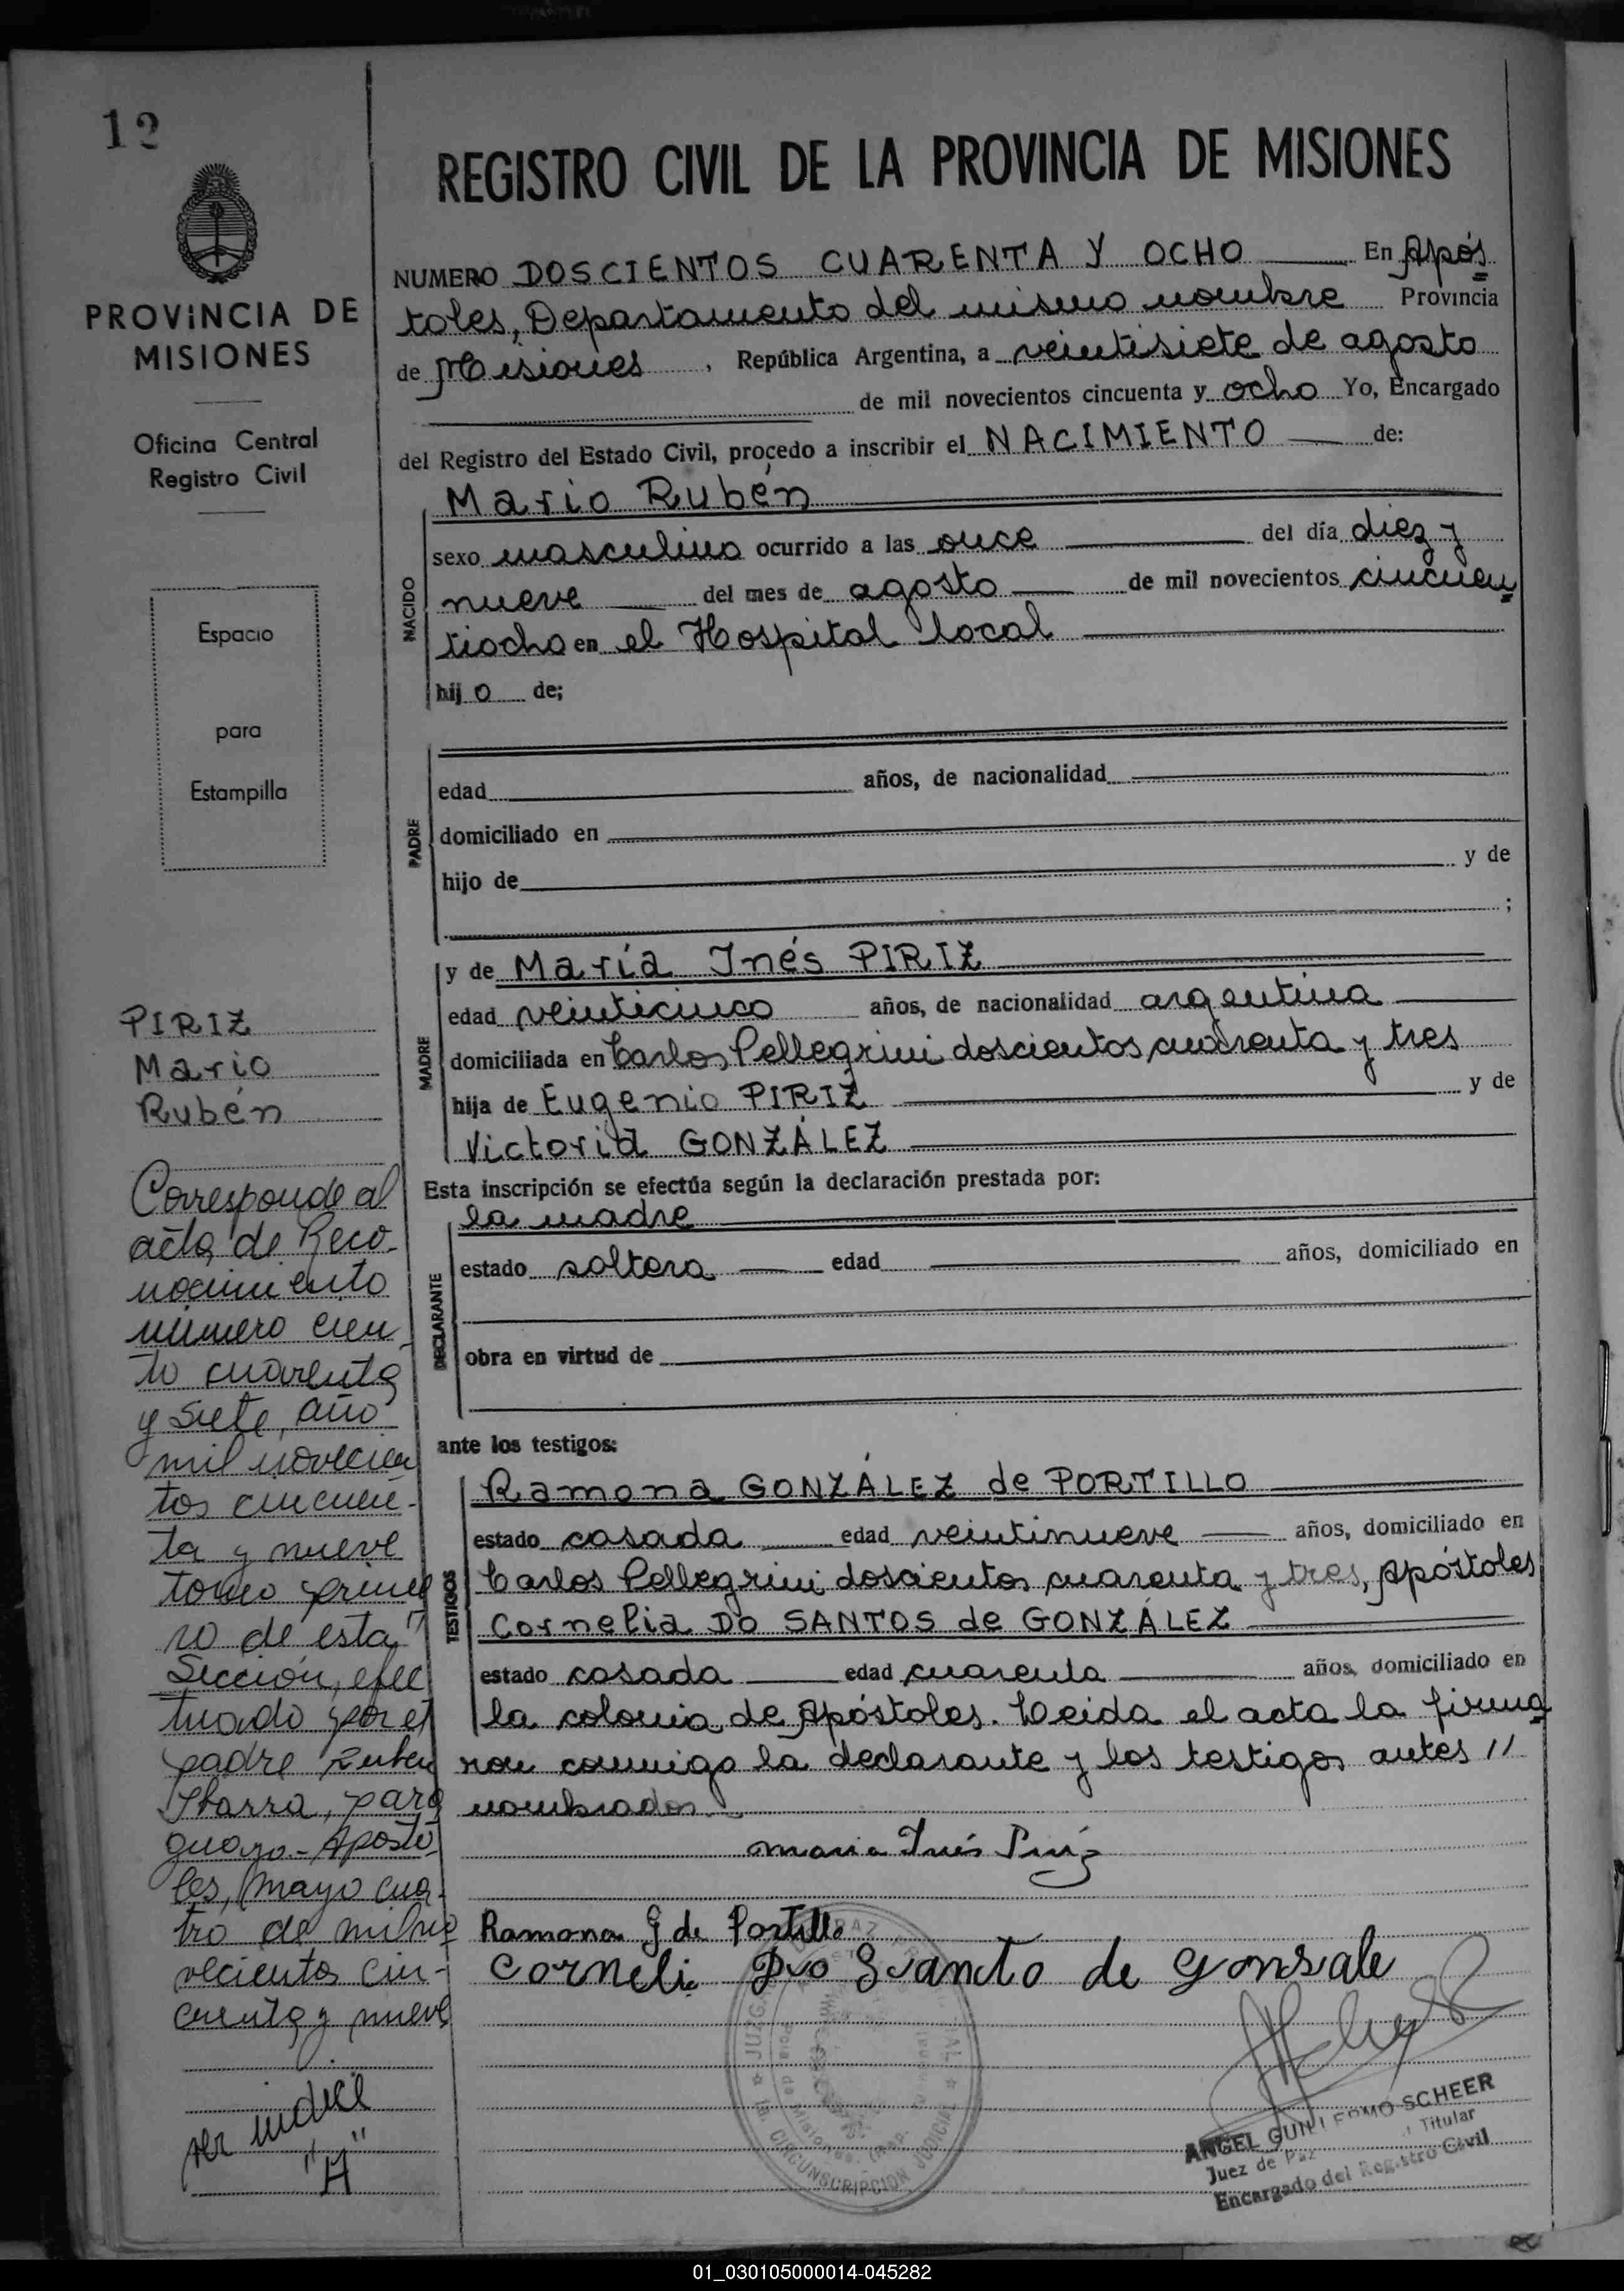 12
REGISTRO CIVIL DE LA PROVINCIA DE MISIONES
PROVINCIA DE
MISIONES
Oficina Central
Registro Civil
Espacio
para
Estampilla
NUMERO DOSCIENTOS CUARENTA Y OCHO En Após
toles, Departamento del mismo nombre Provincia
de Misiones, República Argentina, a veintisiete de agosto
de mil novecientos cincuenta y ocho Yo, Encargado
del Registro del Estado Civil, procedo a inscribir el NACIMIENTO de:
NACIDO
Mario Rubén
sexo masculino ocurrido a las once del día diez y
nueve del mes de agosto de mil novecientos cincuen
tiocho en el Hospital local
hijo de;
PADRE
edad años, de nacionalidad
domiciliado en
hijo de y de
;
MADRE
y de María Inés PIRIZ
edad veinticinco años, de nacionalidad argentina
domiciliada en Carlos Pellegrini doscientos cuarenta y tres
hija de Eugenio PIRIZ y de
Victoria GONZÁLEZ
Esta inscripción se efectúa según la declaración prestada por:
DECLARANTE
la madre
estado soltera edad años, domiciliado en
obra en virtud de
ante los testigos:
TESTIGOS
Ramona GONZÁLEZ de PORTILLO
estado casada edad veintinueve años, domiciliado en
Carlos Pellegrini doscientos cuarenta y tres, Apóstoles
Cornelia DO SANTOS de GONZÁLEZ
estado casada edad cuarenta años, domiciliado en
la colonia de Apóstoles. Leida el acta la firma
ron conmigo la declarante y los testigos antes //
nombrados.
Maria Inés Piriz
Ramona G de Portillo
Corneli Do Sancto de Gonsale
ANGEL GUILLERMO SCHEER
Juez de Paz Titular
Encargado del Registro Civil
JUZGADO PAZ
CIRCUNSCRIPCION JUDICIAL
PIRIZ
Mario
Rubén
Corresponde al
acta de Reco-
nocimiento
número cien
to cuarenta
y siete, año
mil novecien
tos cincuen-
ta y nueve
tomo prime
ro de esta
Sección, efec
tuado por el
padre Ruben
Ibarra, para
guayo.- Apósto
les, Mayo cua-
tro de mil no
vecientos cin-
cuenta y nueve
.
ver indice
"A"
01_030105000014-045282